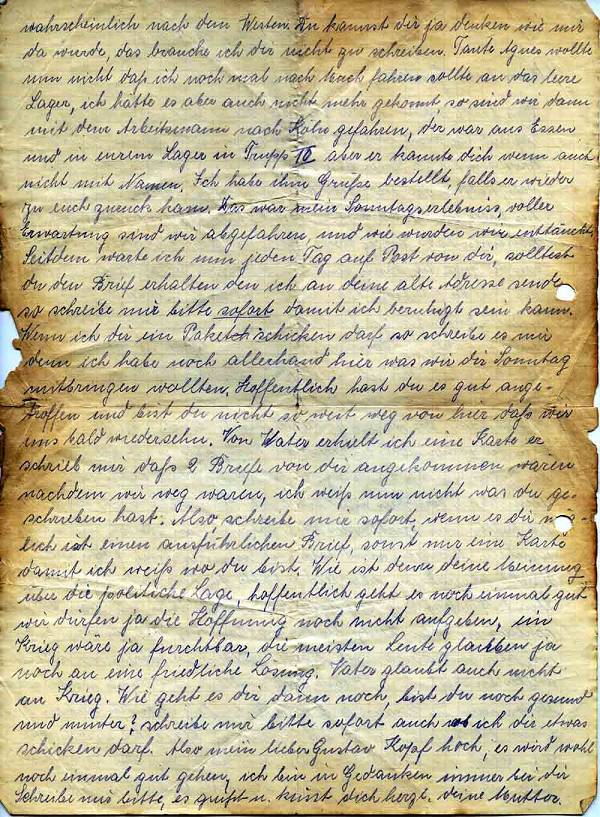 wahrscheinlich nach dem Westen. Du kannst dir ja denken wie mir
da wurde, das brauche ich dir nicht zu schreiben. Tante Agnes wollte
nun nicht daß ich noch mal nach fahren sollte an das leere
Lager, ich hätte es aber auch nicht mehr gekonnt, so sind wir dann
mit dem Arbeitsmann nach Köln gefahren, der war aus Essen
und in eurem Lager in Trupp aber er kannte dich wenn auch
nicht mit Namen. Ich habe ihm Grüße bestellt, falls er wieder
zu euch zurück kam. Das war mein Sonntagserlebniss, voller
Erwartung sind wir abgefahren, und wie wurden wir enttäuscht.
Seitdem warte ich nun jeden Tag auf Post von dir, solltest
du den Brief erhalten den ich an deine alte Adresse sende
so schreibe mir bitte sofort damit ich beruhigt sein kann.
Wenn ich dir ein Paket schicken darf so schreibe es mir
denn ich habe noch allerhand hier was wir dir Sonntag
mitbringen wollten. Hoffentlich hast du es gut ange-
troffen und bist du nicht so weit weg von hier daß wir
uns bald wiedersehn. Von Vater erhielt ich eine Karte er
schrieb mir daß 2 Briefe von dir angekommen wären
nachdem wir weg waren, ich weiß nun nicht was du ge-
schrieben hast. Also schreibe mir sofort, wenn es dir mög-
lich ist einen ausführlichen Brief, sonst nur eine Karte
damit ich weiß wo du bist. Wie ist denn deine Meinung
über die politiche Lage, hoffentlich geht es noch einmal gut
wir dürfen ja die Hoffnung noch nicht aufgeben, ein
Krieg wäre ja furchtbar, die meisten Leute glauben ja
noch an eine friedliche Lösung. Vater glaubt auch nicht
an Krieg. Wie geht es dir dann noch, bist du noch gesund
und munter? schreibe mir bitte sofort auch ob ich dir etwas
schicken darf. Also mein lieber Gustav Kopf hoch, es wird wohl
noch einmal gut gehen, ich bin in Gedanken immer bei dir
Schreibe mir bitte, es grüßt u. küsst dich herzl. deine Mutter.